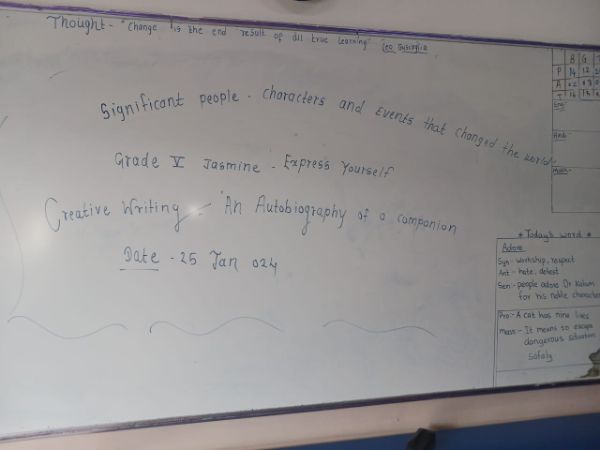 Thought - "Change is the end result of all true learning" Leo Buscaglia
Significant people - Characters and Events that changed the world.
Grade V Jasmine - Express Yourself
Creative Writing - "An Autobiography of a companion
Date - 25 Jan 024
B G T
P 14 12
A
T
Eng:-
Math:-
* Today's word *
Adore
Syn - workship, respect
Ant - hate, detest
Sen:- people adore Dr Kalam
for his noble character
Pro:- A cat has nine lives
Mean:- It means to escape
dangerous situation
safely